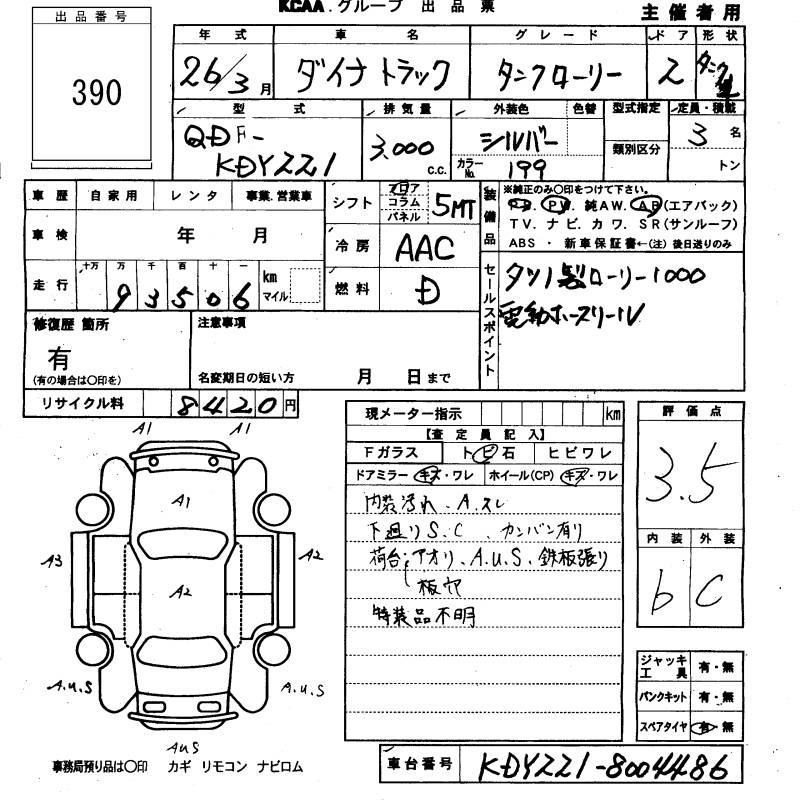 KCAA.グループ 出品票
主催者用
出品番号
390
年式 車名 グレード ドア 形状
26/3月 ダイナトラック タンクローリー 2 タンク車
型式 排気量 外装色 色替 型式指定 定員・積載
QDF-KDY221 3.000 c.c. シルバー カラーNo. 199 類別区分 3名 トン
車歴 自家用 レンタ 事業.営業車
車検 年 月
走行 十万 万 千 百 十 一
93506 km マイル
シフト フロア コラム パネル 5MT
冷房 AAC
燃料 D
装備品
※純正のみ○印をつけて下さい。
P.S. PW. 純AW. AB(エアバック)
TV. ナビ. カワ. SR(サンルーフ)
ABS ・ 新車保証書←(注) 後日送りのみ
セールスポイント
タツノ製ローリー1000
電動ホースリール
修復歴 箇所
有
(有の場合は○印を)
注意事項
名変期日の短い方 月 日まで
リサイクル料 8420円
現メーター指示 km
【査定員記入】
Fガラス トビ石 ヒビワレ
ドアミラー キズ・ワレ ホイール(CP) キズ・ワレ
内装汚れ、A.スレ
下廻りS.C、カンバン有り
荷台アオリ、A.U.S、鉄板張り
板ヤ
特装品不明
評価点
3.5
内装 外装
b C
ジャッキ工具 有・無
パンクキット 有・無
スペアタイヤ 有・無
A1 A1
A1
A3 A2
A2
A.U.S A.U.S
AUS
事務局預り品は○印 カギ リモコン ナビロム
車台番号 KDY221-8004486